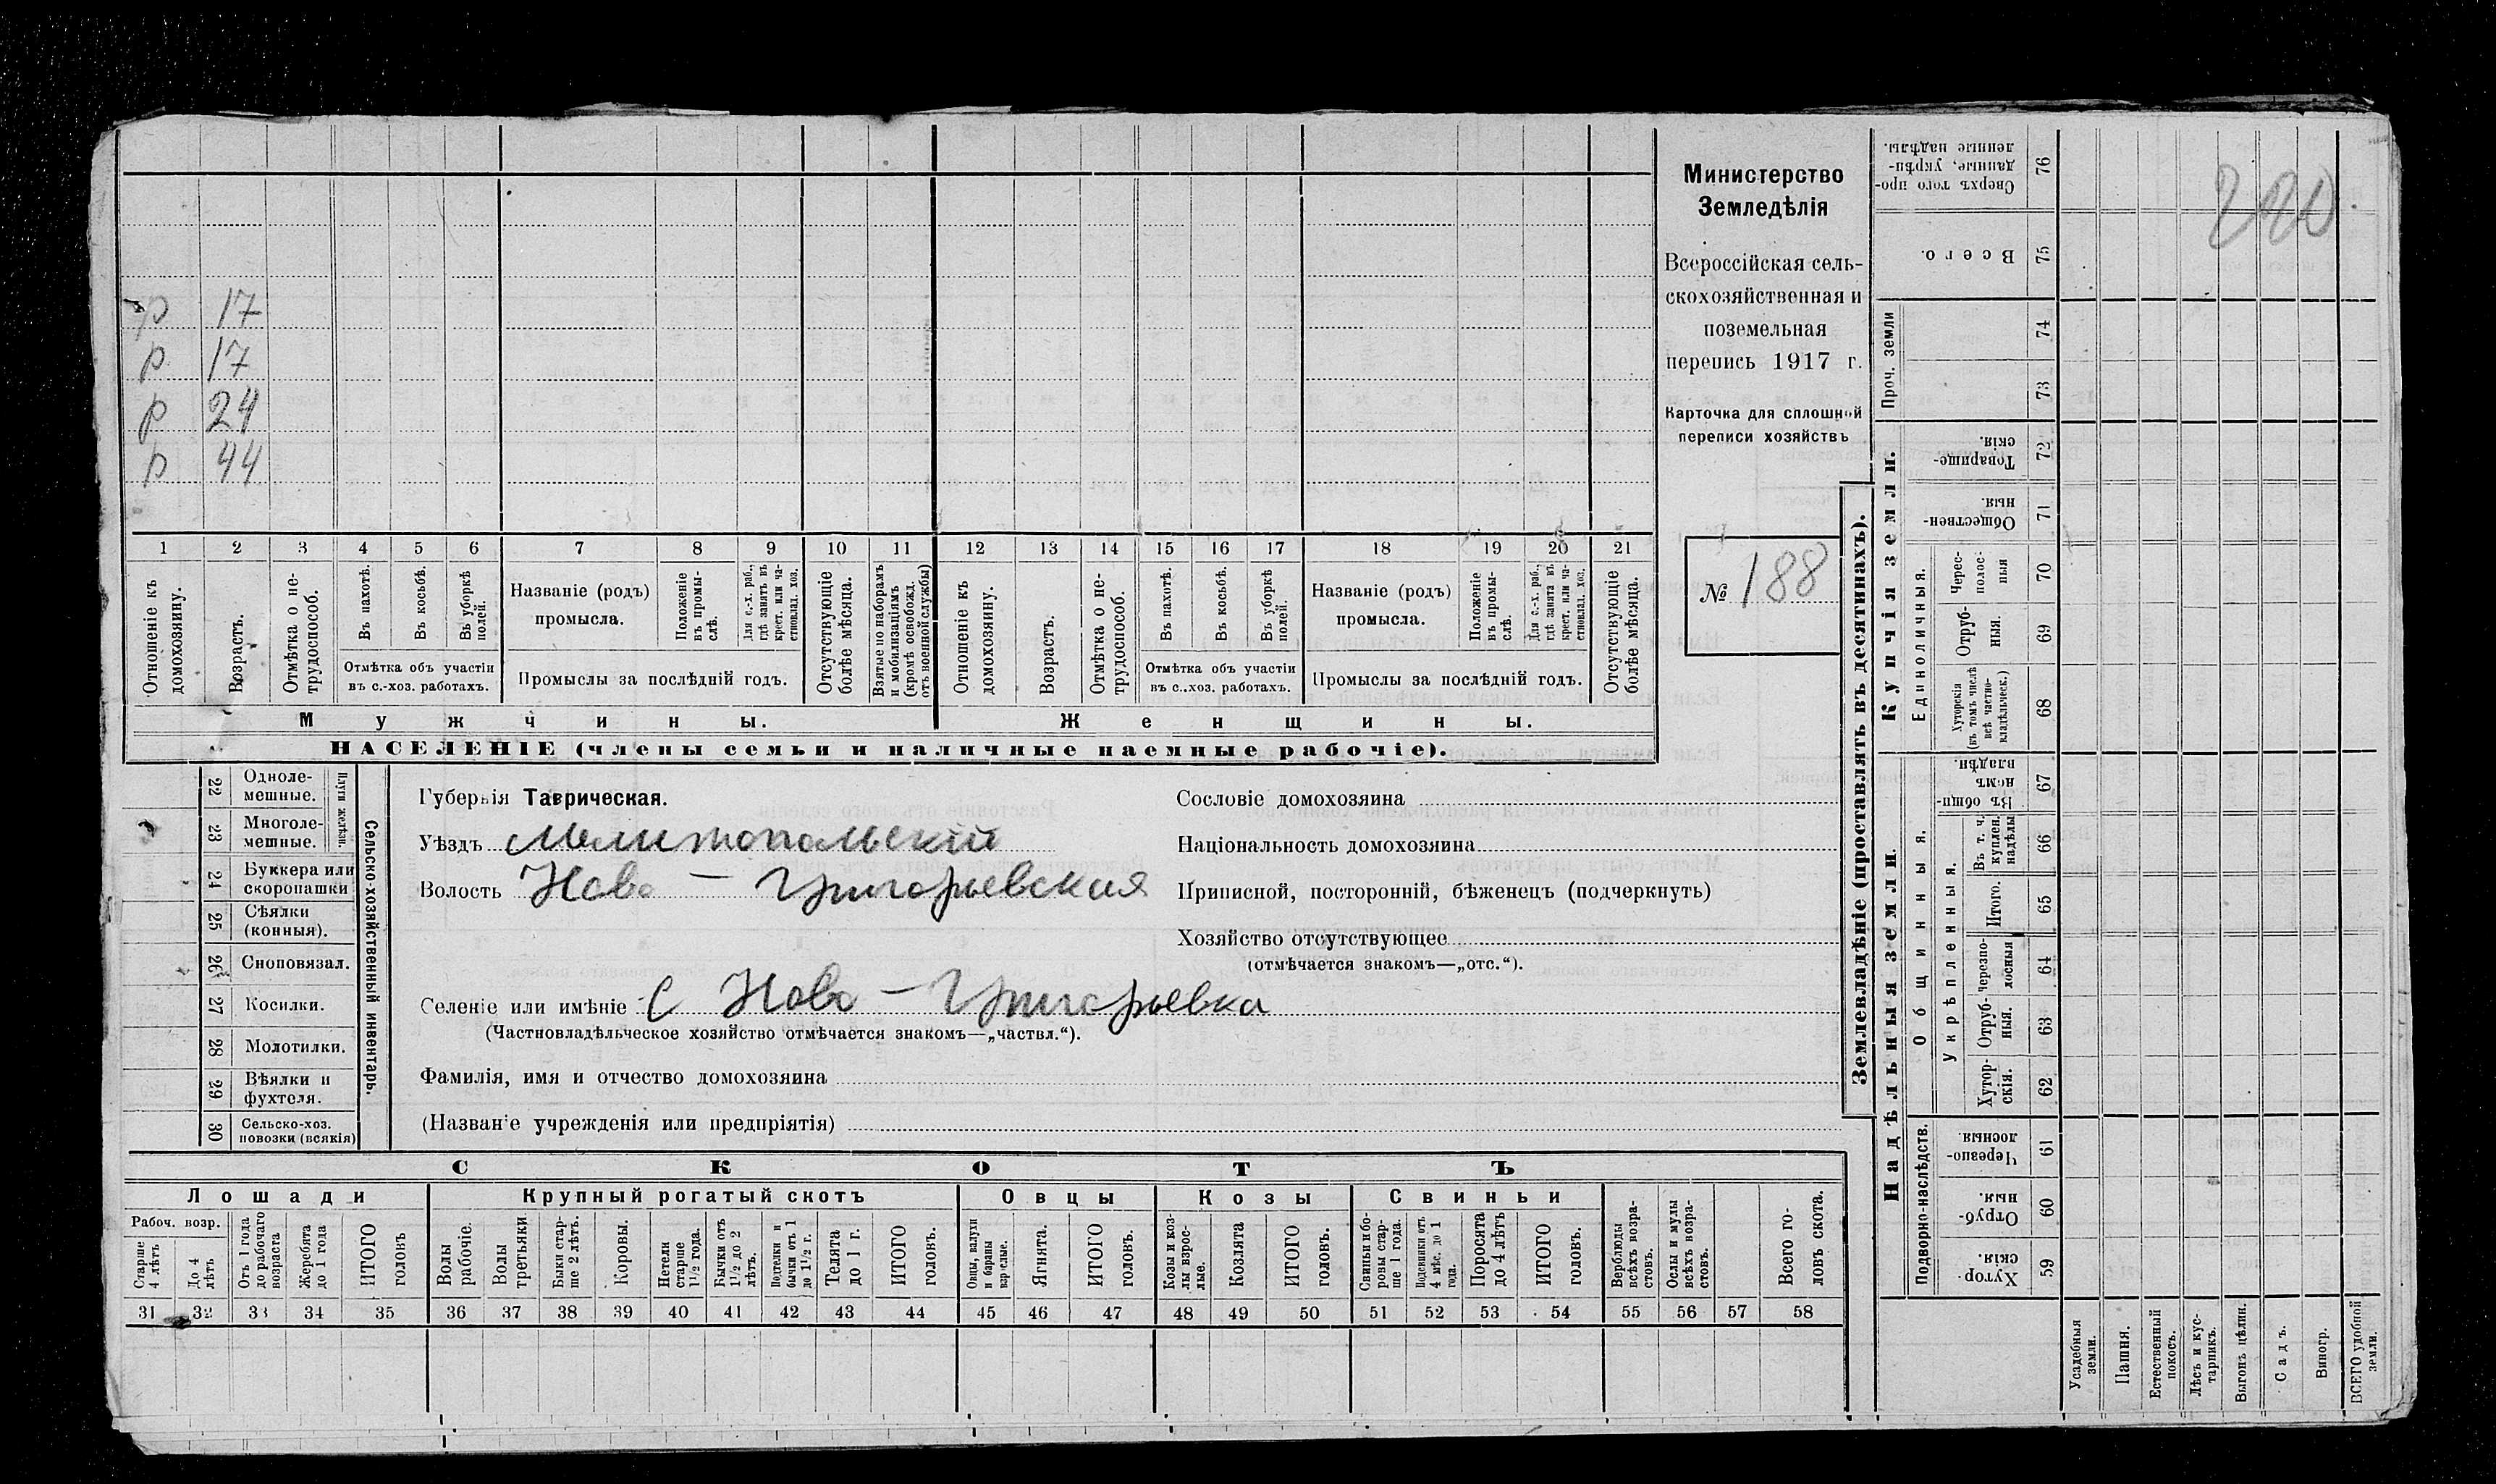 р 17
р 17
р 24
р 44
1 2 3 4 5 6 7 8 9 10 11 12 13 14 15 16 17 18 19 20 21
Отношеніе къ домохозяину.
Возрастъ.
Отмѣтка о нетрудоспособ.
Въ пахотѣ.
Въ косьбѣ.
Въ уборкѣ полей.
Отмѣтка объ участіи
въ с.-хоз. работахъ.
Названіе (родъ)
промысла.
Положеніе въ промыслѣ.
Для с.-х. раб., гдѣ занятъ въ крест. или частновлад. хоз.
Промыслы за послѣдній годъ.
Отсутствующіе болѣе мѣсяца.
Взятые по наборамъ и мобилизаціямъ (кромѣ освобожд. отъ военной службы)
Отношеніе къ домохозяину.
Возрастъ.
Отмѣтка о нетрудоспособ.
Въ пахотѣ.
Въ косьбѣ.
Въ уборкѣ полей.
Отмѣтка объ участіи
въ с..хоз. работахъ.
Названіе (родъ)
промысла.
Положеніе въ промыслѣ.
Для с.-х. раб., гдѣ занята въ крест. или частновлад. хоз.
Промыслы за послѣдній годъ.
Отсутствующіе болѣе мѣсяца.
Мужчины. Женщины.
НАСЕЛЕНІЕ (члены семьи и наличные наемные рабочіе).
Министерство
Земледѣлія
Всероссійская сель-
скохозяйственная и
поземельная
перепись 1917 г.
Карточка для сплошной
переписи хозяйствъ
№ 188
22 Одноле-
мешные.
23 Многоле-
мешные.
Плуги желѣзн.
24 Буккера или
скоропашки
25 Сѣялки
(конныя).
26 Сноповязал.
27 Косилки.
28 Молотилки.
29 Вѣялки и
фухтеля.
30 Сельско-хоз.
повозки (всякія)
Сельско-хозяйственный инвентарь.
Губернія Таврическая.
Уѣздъ Мелитопольскій
Волость Ново - Григорьевская
Селеніе или имѣніе С Ново - Григорьевка
(Частновладѣльческое хозяйство отмѣчается знакомъ—„частвл.“).
Фамилія, имя и отчество домохозяина
(Названіе учрежденія или предпріятія)
Сословіе домохозяина
Національность домохозяина
Приписной, посторонній, бѣженецъ (подчеркнуть)
Хозяйство отсутствующее
(отмѣчается знакомъ—„отс.“).
СКОТЪ
Лошади Крупный рогатый скотъ Овцы Козы Свиньи
Рабоч. возр.
Старше 4 лѣтъ
До 4 лѣтъ
Отъ 1 года до рабочаго возраста
Жеребята до 1 года
ИТОГО головъ
Волы рабочіе.
Волы третьяки
Быки старше 2 лѣтъ.
Коровы.
Нетели старше 1½ года.
Бычки отъ 1½ до 2 лѣтъ.
Подтелки и бычки отъ 1 до 1½ г.
Телята до 1 г.
ИТОГО головъ.
Овцы, валухи и бараны взрослые.
Ягнята.
ИТОГО головъ.
Козы и козлы взрослые.
Козлята
ИТОГО головъ.
Свиньи и боровы старше 1 года.
Подсвинки отъ 4 мѣс. до 1 года.
Поросята до 4 лѣтъ
ИТОГО головъ.
Верблюды всѣхъ возрастовъ.
Ослы и мулы всѣхъ возрастовъ.
Всего головъ скота.
31 32 33 34 35 36 37 38 39 40 41 42 43 44 45 46 47 48 49 50 51 52 53 54 55 56 57 58
Землевладѣніе (проставлять въ десятинахъ).
Сверхъ того проданные, укрѣпленные надѣлы. 76
Всего. 75
Проч. земли
74
73
Купчія земли.
Товарищескія. 72
Общественныя. 71
Единоличныя.
Чересполосныя 70
Отрубныя. 69
Хуторскія (въ томъ числѣ всѣ частновладѣльческ.) 68
Надѣльныя земли.
Общинныя.
Въ общиномъ владѣн. 67
Укрѣпленныя.
Въ т. ч. куплен. надѣлы 66
Итого. 65
Черезполосныя 64
Отрубныя. 63
Хуторскія. 62
Подворно-наслѣдств.
Черезполосныя. 61
Отрубныя. 60
Хуторскія. 59
Усадебныя земли.
Пашня.
Естественный покосъ.
Лѣсъ и кустарникъ.
Выгонъ цѣлин.
Садъ.
Виногр.
ВСЕГО удобной земли.